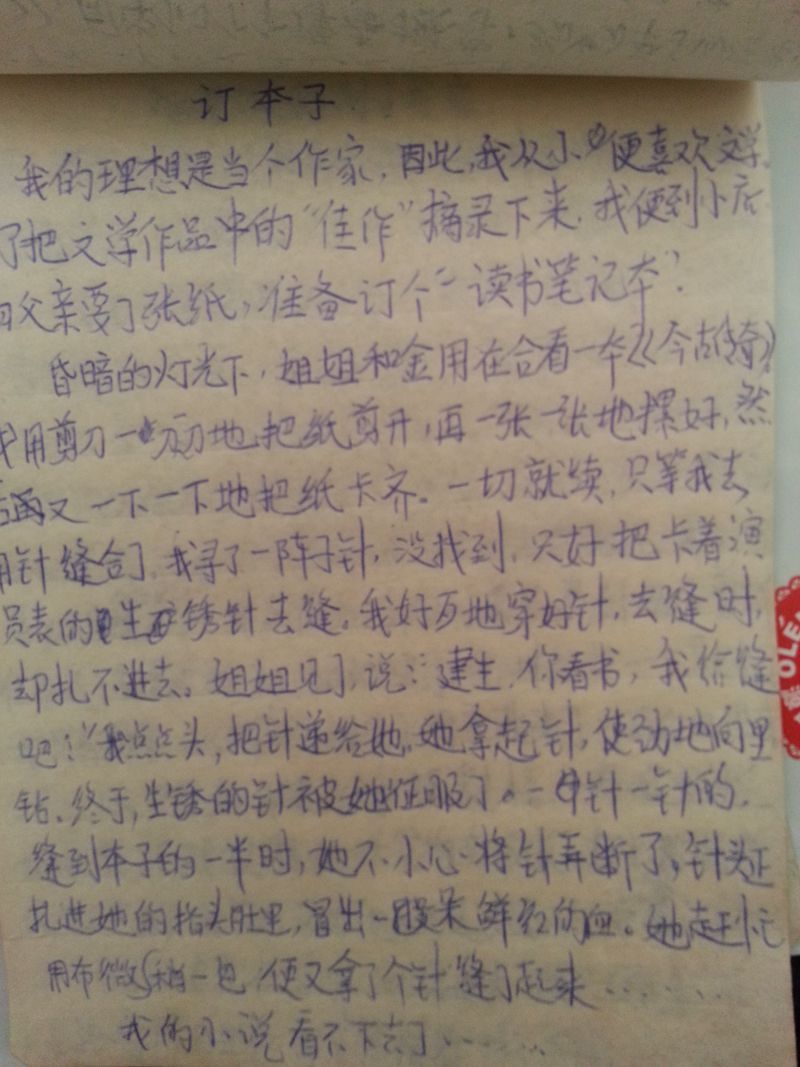 订本子
我的理想是当个作家，因此，我从小便喜欢文学，
了把文学作品中的“佳作”摘录下来，我便到小店
向父亲要了张纸，准备订个“读书笔记本”．
昏暗的灯光下，姐姐和金用在合看一本《今古传奇》
我用剪刀一刀刀地把纸剪开，再一张一张地摞好，然
后再又一下一下地把纸卡齐。一切就续，只等我去
用针缝合了，我寻了一阵子针，没找到，只好把卡着演
员表的生锈针去缝，我好歹地穿好针，去缝时，
却扎不进去。姐姐见了，说：“建生，你看书，我给缝
吧！”我点点头，把针递给她，她拿起针，使劲地向里
钻、终于，生锈的针被她征服了。一针一针的，
缝到本子的一半时，她不小心将针弄断了，针头正
扎进她的指头肚里，冒出一股 鲜红的血。她赶忙
用布微稍一包，便又拿了个针缝了起来……
我的小说看不下去了……
OLE